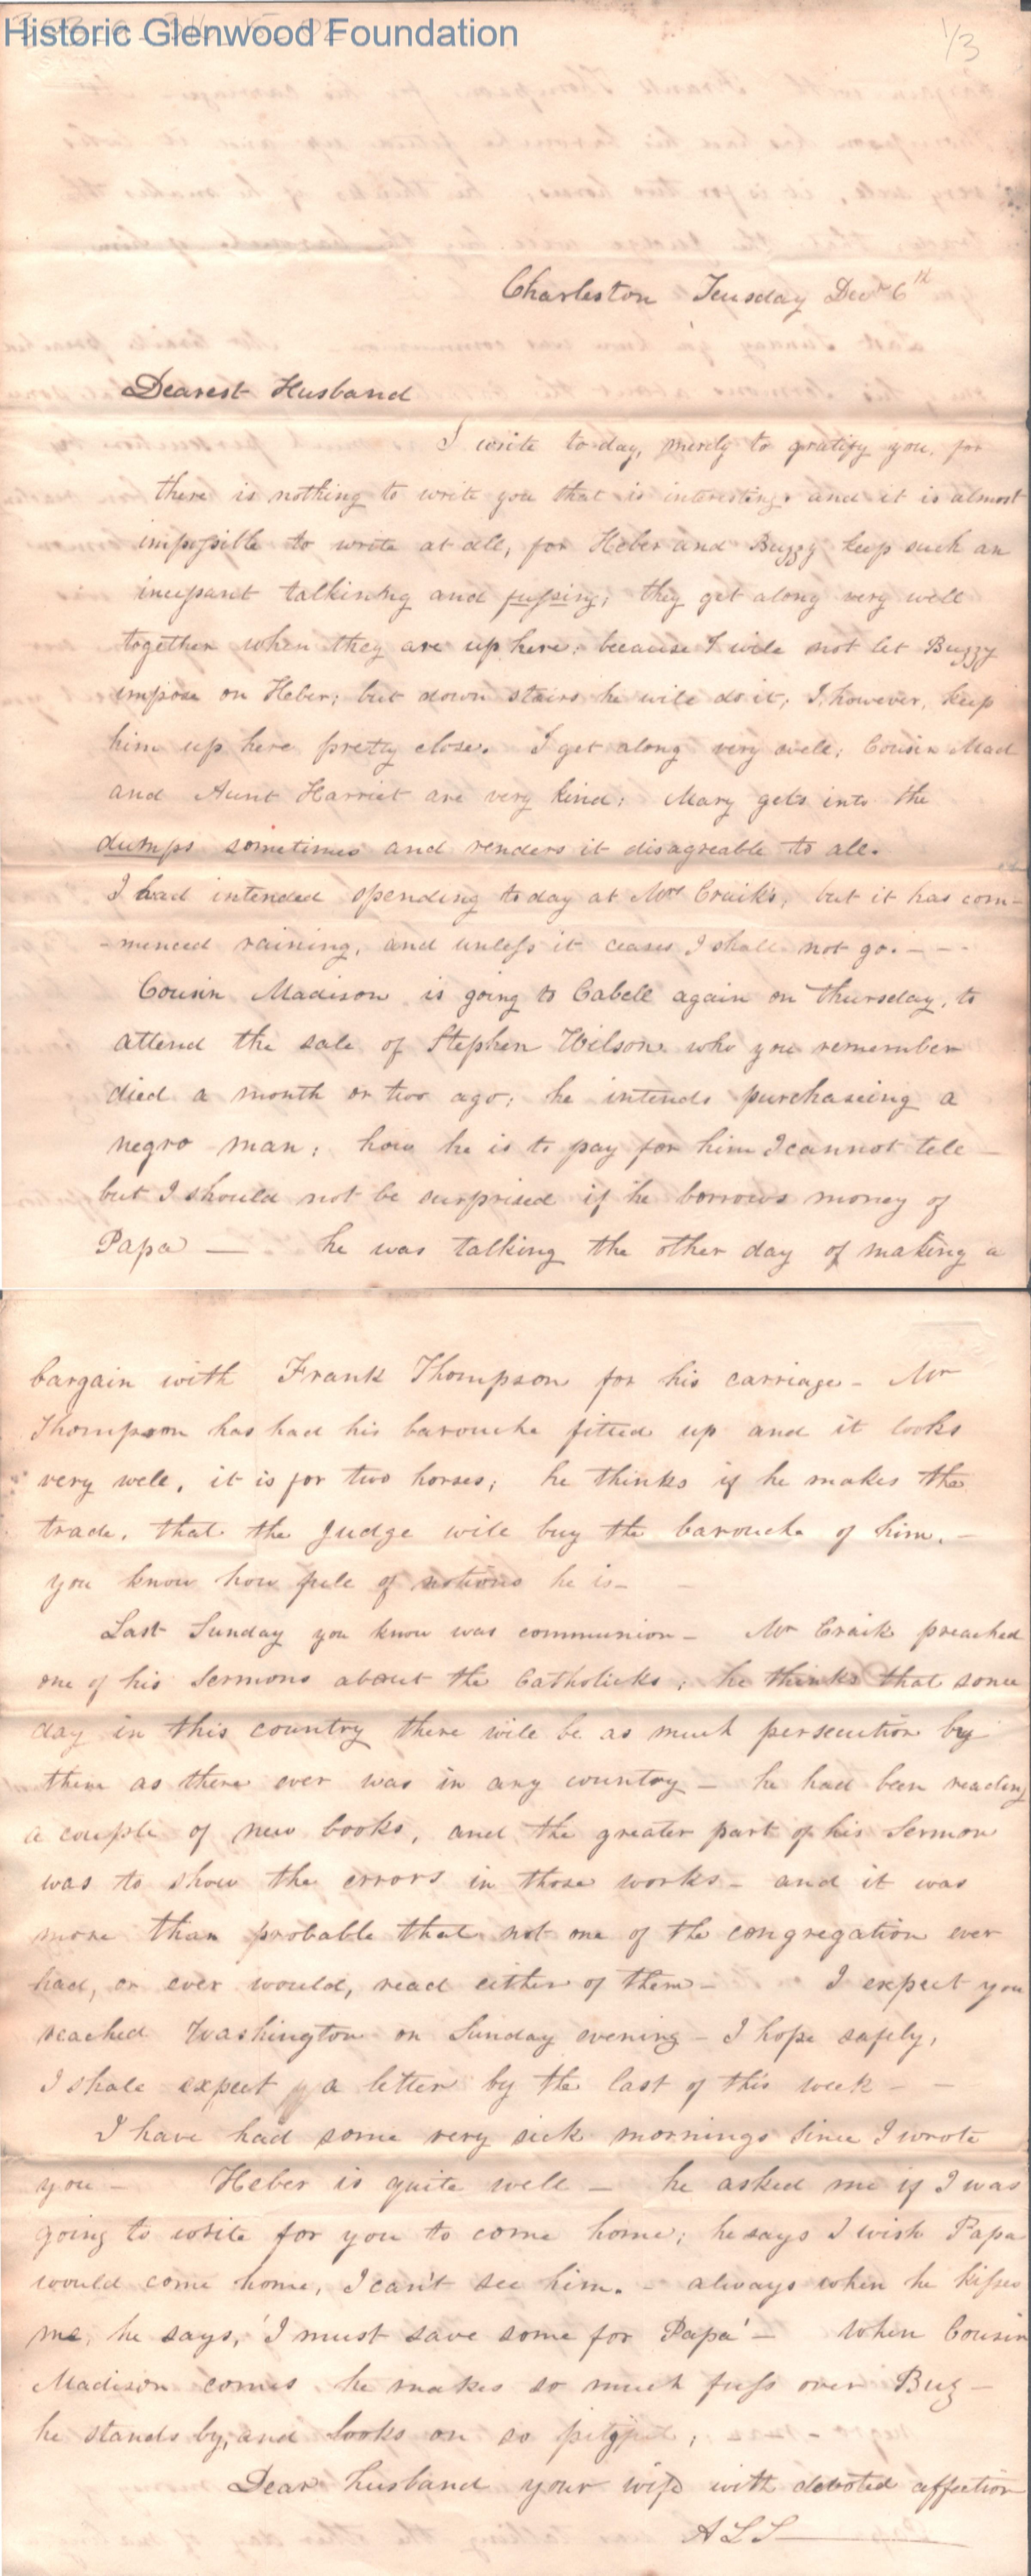 Historic Glenwood Foundation
1/3
Charleston Teusday Decr 6th
Dearest Husband
I write to-day, merely to gratify you, for
there is nothing to write you that is interesting, and it is almost
impossible to write at all, for Heber and Buggy keep such an
incessant talkinkg and fussing; they get along very well
together when they are up here, because I will not let Buggy
impose on Heber; but down stairs he will do it; I, however, keep
him up here pretty close. I get along very well; Cousin Mad
and Aunt Harriet are very kind; Mary gets into the
dumps sometimes and renders it disagreable to all.
I had intended spending to day at Mrs Craik's, but it has com-
-menced raining, and unless it ceases I shall not go. - - -
Cousin Madison is going to Cabell again on Thursday, to
attend the sale of Stephen Wilson who you remember
died a month or two ago; he intends purchaseing a
negro man; how he is to pay for him I cannot tell
but I should not be surprised if he borrows money of
Papa — he was talking the other day of making a
bargain with Frank Thompson for his carriage - Mr
Thompson has had his barouche fitted up and it looks
very well, it is for two horses; he thinks if he makes the
trade, that the Judge will buy the barouche of him. -
you know how full of notions he is -
Last Sunday you know was communion - Mr Craik preached
one of his Sermons about the Catholicks; he thinks that some
day in this country there will be as much persecution by
them as there ever was in any country - he had been reading
a couple of new books, and the greater part of his Sermon
was to show the errors in those works - and it was
more than probable that not one of the congregation ever
had, or ever would, read either of them - I expect you
reached Washington on Sunday evening - I hope safely,
I shall expect a letter by the last of this week - -
I have had some very sick mornings since I wrote
you - Heber is quite well - he asked me if I was
going to write for you to come home; he says I wish Papa
would come home, I can't see him. - always when he kisses
me, he says, 'I must save some for Papa' - When Cousin
Madison comes he makes so much fuss over Bug -
he stands by, and looks on so pitiful; - - -
Dear husband your wife with devoted affection
A L S